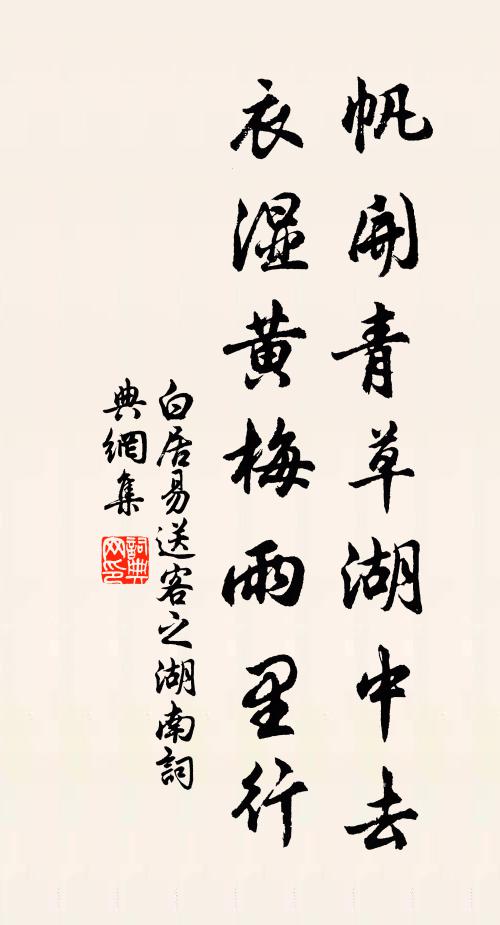 帆開青草湖中去
衣濕黃梅雨里行
白居易送客之湖南詞
典網集
詞典網印